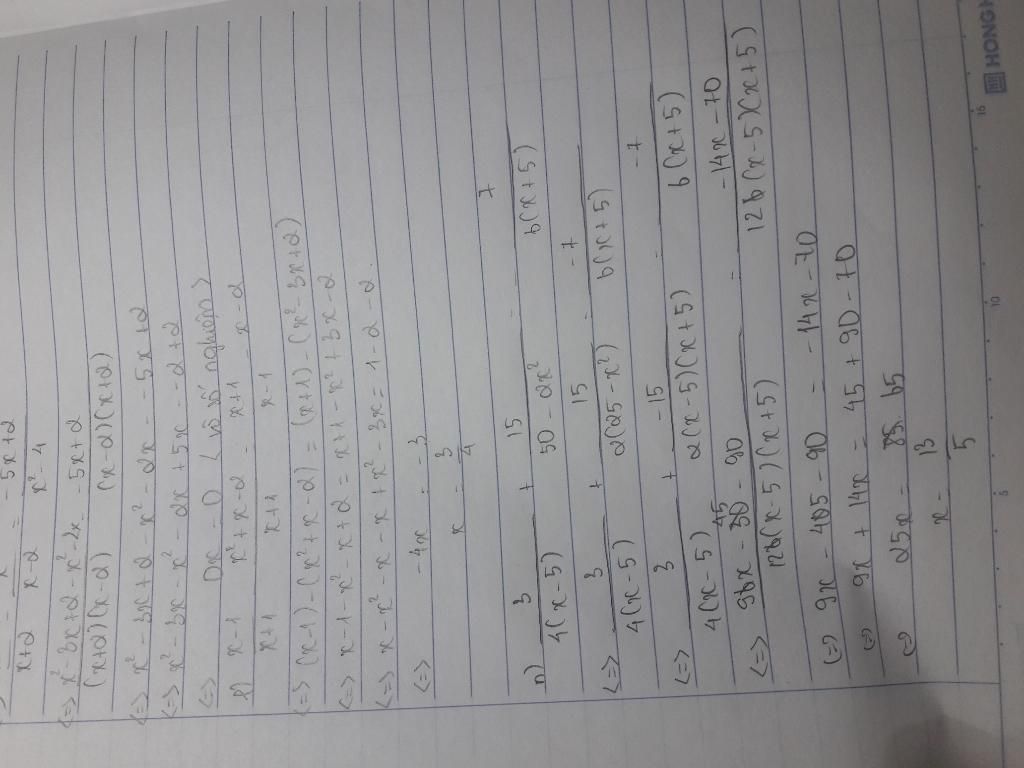 x+2 x-2 = x²-4 -5x+2
<=> x²-3x+2-x²-2x (x+2)(x-2) = -5x+2 (x-2)(x+2)
<=> x²-3x+2-x²-2x = -5x+2
<=> x²-3x-x²-2x+5x = -2+2
<=> 0x = 0 < vô số nghiệm >
x-1 x+1 - x²+x-2 x+1 = x+1 x-1 - x-2
<=> (x-1)-(x²+x-2) = (x+1)-(x²-3x+2)
<=> x-1-x²-x+2 = x+1-x²+3x-2
<=> x-x²-x-x+x²-3x = 1-2-2.
<=> -4x = -3
x = 3/4
n) 3/4(x-5) + 15/50-2x² = 7/6(x+5)
<=> 3/4(x-5) + 15/2(25-x²) = -7/6(x+5)
<=> 3/4(x-5) + -15/2(x-5)(x+5) = -7/6(x+5)
<=> -90/12b(x-5)(x+5) = -14x-70/12b(x-5)(x+5)
<=> 9x-405-90 = -14x-70
<=> 9x+14x = 45+90-70
<=> 25x = 65
x = 13/5
HONGH
5 10 16